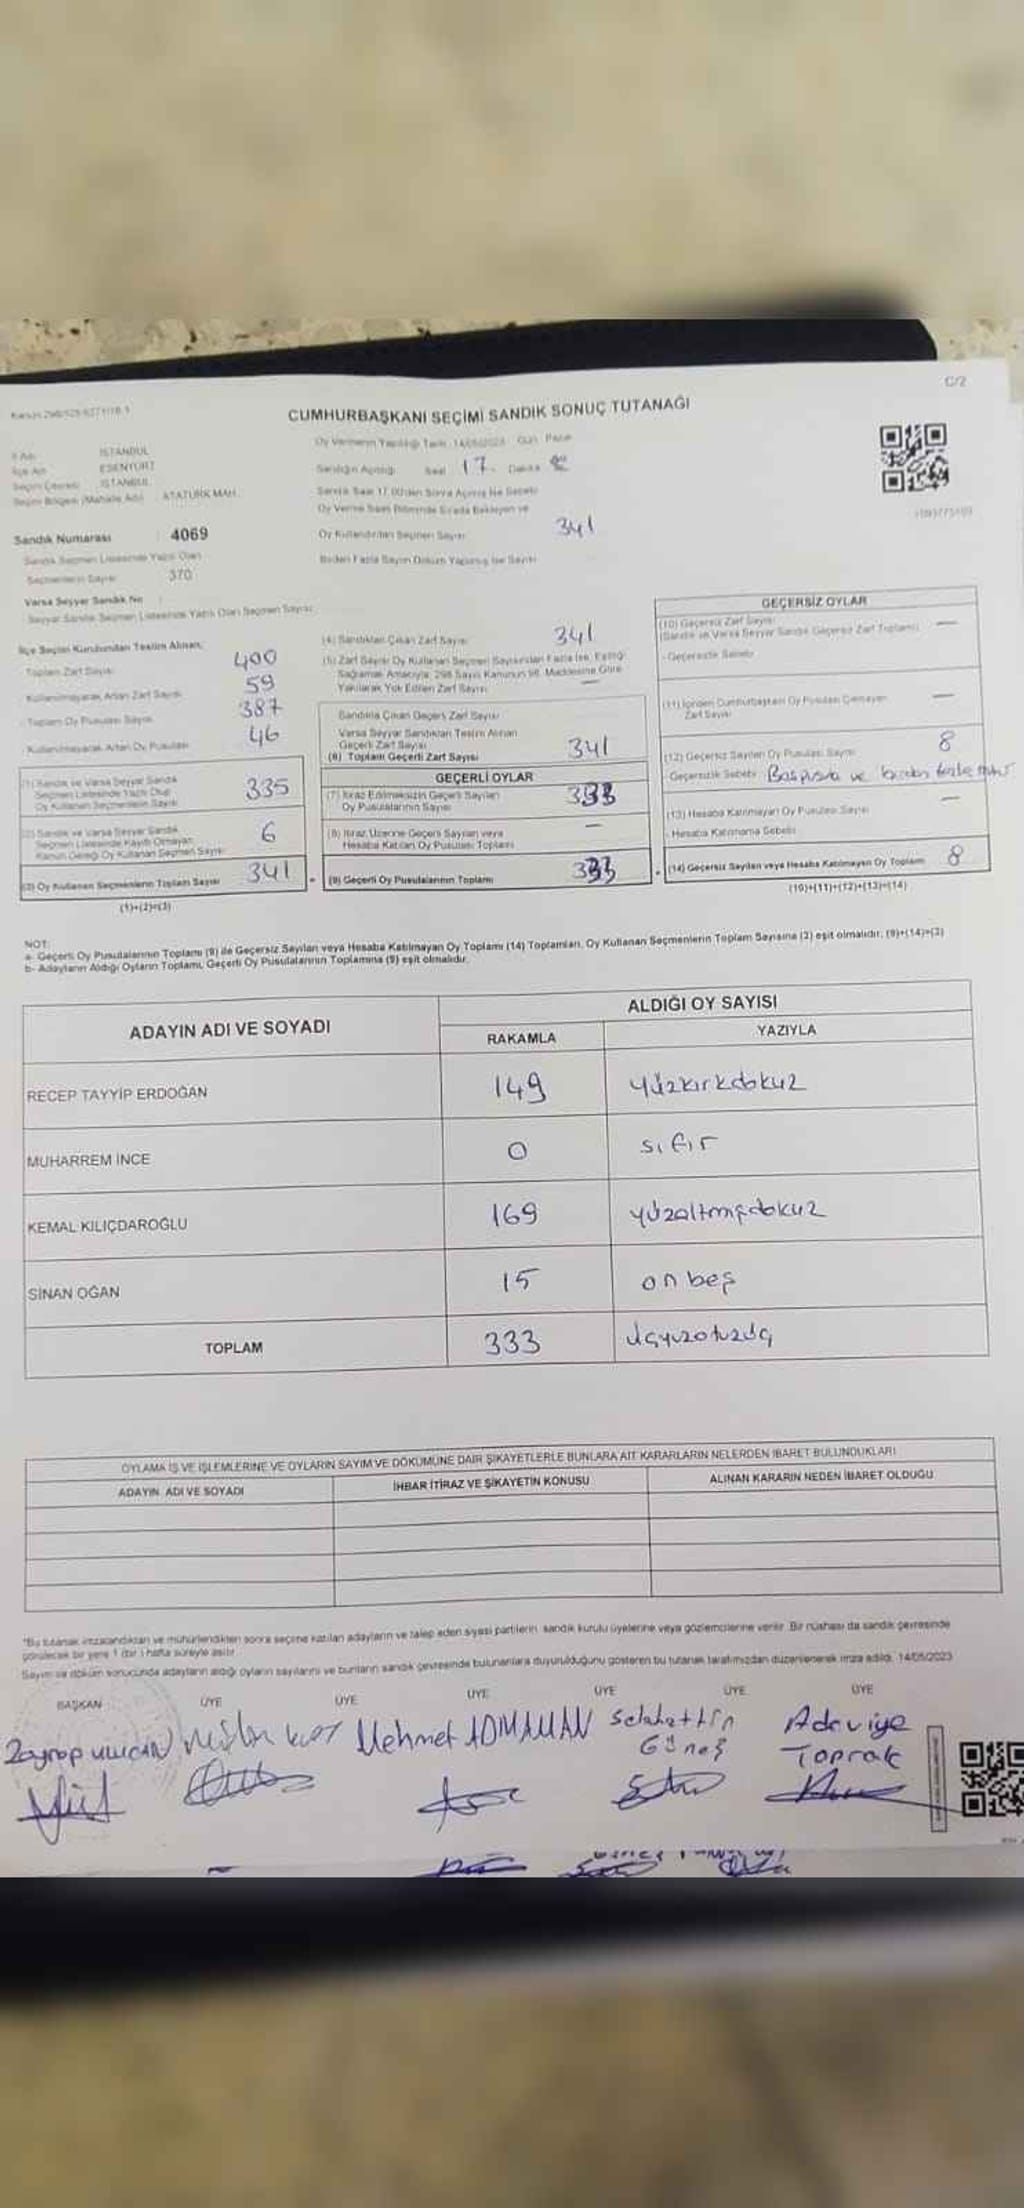 C/2
CUMHURBAŞKANI SEÇİMİ SANDIK SONUÇ TUTANAĞI
Oy Vermenin Yapıldığı Tarih 14/05/2023 Gün Pazar
İli Adı İSTANBUL
İlçe Adı ESENYURT
Seçim Çevresi İSTANBUL
Seçim Bölgesi (Mahalle Adı) ATATÜRK MAH.
Sandığın Açıldığı Saat 17. Dakika
Sandık Saat 17.00'den Sonra Açılmış İse Sebebi
Sandık Numarası : 4069
Sandık Seçmen Listesinde Yazılı Olan
Seçmenlerin Sayısı 370
Varsa Seyyar Sandık No
Seyyar Sandık Seçmen Listesinde Yazılı Olan Seçmen Sayısı
Oy Kullandırılan Seçmen Sayısı 341
Birden Fazla Sayım Döküm Yapılmış İse Sayısı
İlçe Seçim Kurulundan Teslim Alınan;
Toplam Zarf Sayısı 400
Kullanılmayarak Artan Zarf Sayısı 59
Toplam Oy Pusulası Sayısı 387
Kullanılmayarak Artan Oy Pusulası 46
(1) Sandık ve Varsa Seyyar Sandık
Seçmen Listesinde Yazılı Olup
Oy Kullanan Seçmenlerin Sayısı 335
(2) Sandık ve Varsa Seyyar Sandık
Seçmen Listesinde Kayıtlı Olmayan
Kanun Gereği Oy Kullanan Seçmen Sayısı 6
(3) Oy Kullanan Seçmenlerin Toplam Sayısı 341
(1)+(2)=(3)
(4) Sandıktan Çıkan Zarf Sayısı 341
(5) Zarf Sayısı Oy Kullanan Seçmen Sayısından Fazla İse, Eşitliği
Sağlamak Amacıyla, 298 Sayılı Kanunun 98. Maddesine Göre
Yakılarak Yok Edilen Zarf Sayısı —
Sandıkta Çıkan Geçerli Zarf Sayısı
Varsa Seyyar Sandıktan Teslim Alınan
Geçerli Zarf Sayısı
(6) Toplam Geçerli Zarf Sayısı 341
GEÇERLİ OYLAR
(7) İtiraz Edilmeksizin Geçerli Sayılan
Oy Pusulalarının Sayısı 333
(8) İtiraz Üzerine Geçerli Sayılan veya
Hesaba Katılan Oy Pusulası Toplamı —
(9) Geçerli Oy Pusulalarının Toplamı 333
GEÇERSİZ OYLAR
(10) Geçersiz Zarf Sayısı —
(Sandık ve Varsa Seyyar Sandık Geçersiz Zarf Toplamı)
- Geçersizlik Sebebi
(11) İçinden Cumhurbaşkanı Oy Pusulası Çıkmayan
Zarf Sayısı —
(12) Geçersiz Sayılan Oy Pusulası Sayısı 8
Geçersizlik Sebebi Boş pusula ve birden fazla
(13) Hesaba Katılmayan Oy Pusulası Sayısı —
- Hesaba Katılmama Sebebi
(14) Geçersiz Sayılan veya Hesaba Katılmayan Oy Toplamı 8
(10)+(11)+(12)+(13)=(14)
NOT:
a- Geçerli Oy Pusulalarının Toplamı (9) ile Geçersiz Sayılan veya Hesaba Katılmayan Oy Toplamı (14) Toplamları, Oy Kullanan Seçmenlerin Toplam Sayısına (3) eşit olmalıdır. (9)+(14)=(3)
b- Adayların Aldığı Oyların Toplamı, Geçerli Oy Pusulalarının Toplamına (9) eşit olmalıdır.
ADAYIN ADI VE SOYADI
ALDIĞI OY SAYISI
RAKAMLA YAZIYLA
RECEP TAYYİP ERDOĞAN 149 yüzkırkdokuz
MUHARREM İNCE 0 sıfır
KEMAL KILIÇDAROĞLU 169 yüzaltmışdokuz
SİNAN OĞAN 15 on beş
TOPLAM 333 üçyüzotuzüç
OYLAMA İŞ VE İŞLEMLERİNE VE OYLARIN SAYIM VE DÖKÜMÜNE DAİR ŞİKAYETLERLE BUNLARA AİT KARARLARIN NELERDEN İBARET BULUNDUKLARI
ADAYIN ADI VE SOYADI İHBAR İTİRAZ VE ŞİKAYETİN KONUSU ALINAN KARARIN NEDEN İBARET OLDUĞU
*Bu tutanak imzalandıktan ve mühürlendikten sonra seçime katılan adayların ve talep eden siyasi partilerin sandık kurulu üyelerine veya gözlemcilerine verilir. Bir nüshası da sandık çevresinde
görülecek bir yere 1 (bir) hafta süreyle asılır.
Sayım ve döküm sonucunda adayların aldığı oyların sayılarını ve bunların sandık çevresinde bulunanlara duyurulduğunu gösteren bu tutanak tarafımızdan düzenlenerek imza edildi. 14/05/2023
BAŞKAN ÜYE ÜYE ÜYE ÜYE ÜYE ÜYE
Zeynep Mehmet ADIYAMAN Selahattin Güneş Adeviye Toprak